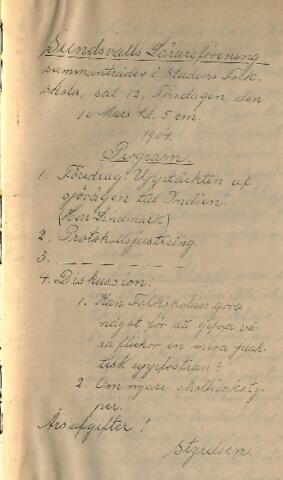 Sundsvalls Lärareförening
sammanträder i Stadens Folk-
skola, sal 12, Torsdagen den
10 Mars kl. 5 em.
1904.
Program.
1. Föredrag: Upptäckten af
sjövägen till Indien.
(Herr Lindmark)
2. Protokollsjustering.
3. ————
4. Diskussion:
1. Kan Folkskolan göra
något för att gifva vå-
ra flickor en mera prak-
tisk uppfostran?
2. Om nyare skolbänksty-
per.
Årsafgifter!
Styrelsen.